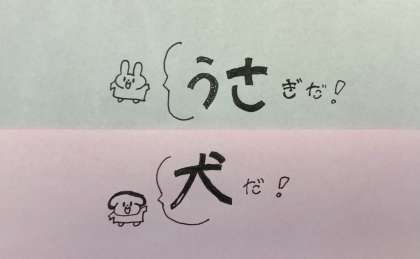 うさぎだ!
犬だ!